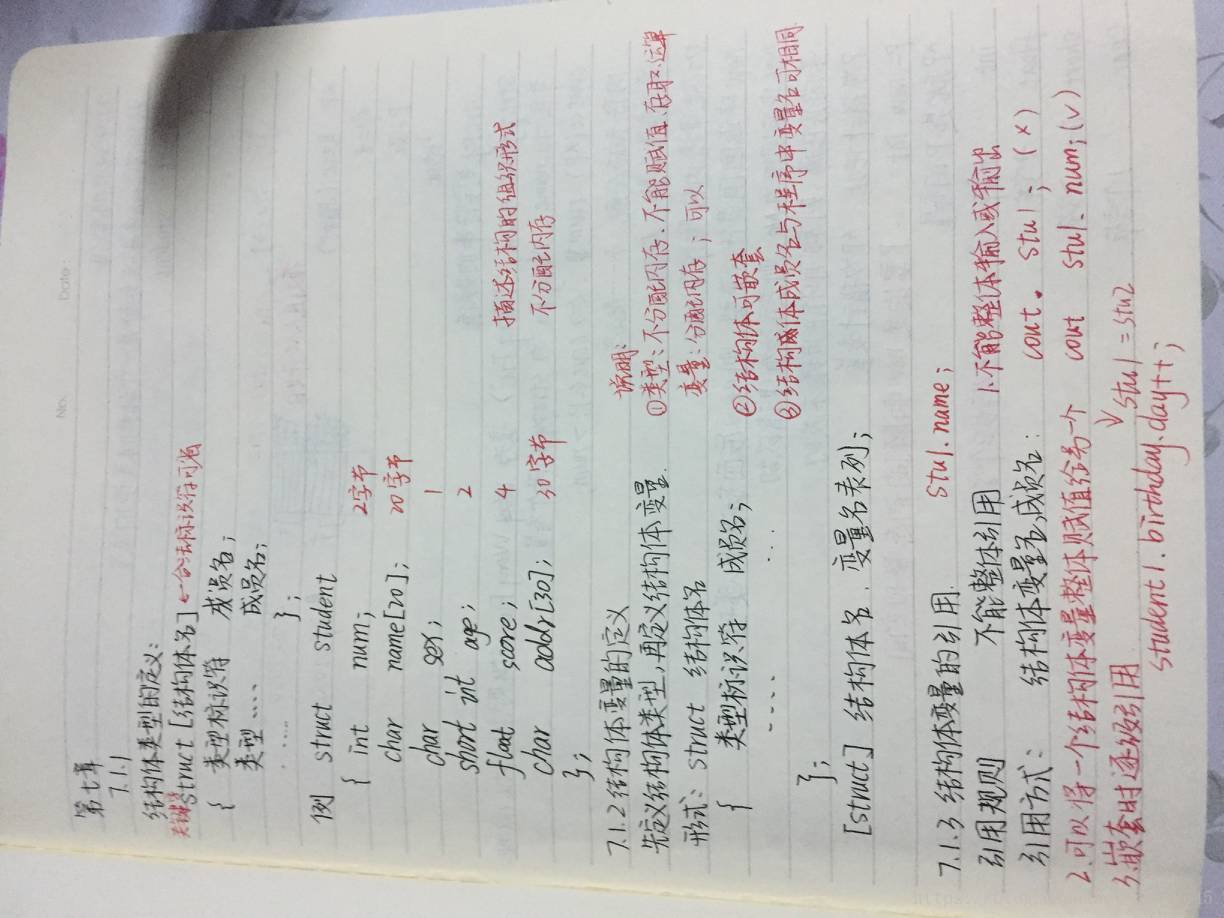 No.
Date:
第七章
7.1.1
结构体类型的定义:
关键字 struct [结构体名] ← 合法标识符可省
{ 类型标识符 成员名;
类型.... 成员名;
.....
};
例 struct student
{ int num; 2字节
char name[20]; 20字节
char sex; 1
short int age; 2
float score; 4 描述结构的组织形式
char addr[30]; 30字节 不分配内存
};
7.1.2 结构体变量的定义 说明:
先定义结构体类型,再定义结构体变量. ①类型:不分配内存、不能赋值、存取、运算
形式: struct 结构体名 变量:分配内存;可以
{ 类型标识符 成员名; ②结构体可嵌套
..... ... ③结构体成员名与程序中变量名可相同
};
[struct] 结构体名 变量名表列;
7.1.3 结构体变量的引用. stu1.name;
引用规则 不能整体引用 1.不能整体输入或输出
引用方式: 结构体变量名.成员名: cout. stu1; (×)
2.可以将一个结构体变量整体赋值给另一个 cout stu1.num;(√)
↓ stu1=stu2
3.嵌套时逐级引用
student1.birthday.day++;